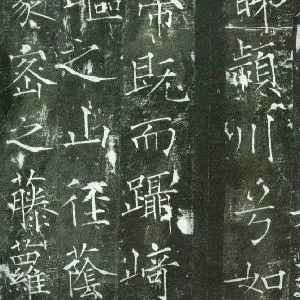 睇潁川兮如
帶既而躡崎
嶇之山徑蔭
蒙密之藤蘿